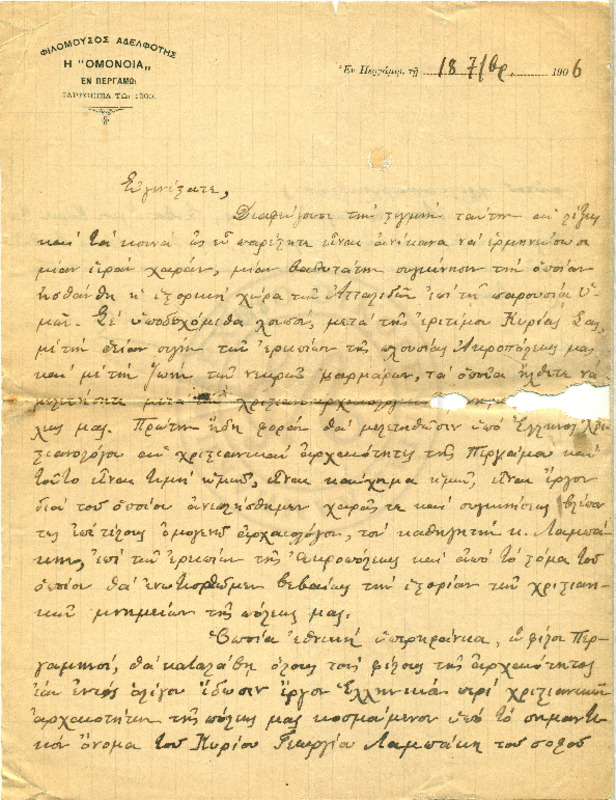 ΦΙΛΟΜΟΥΣΟΣ ΑΔΕΛΦΟΤΗΣ
Η "ΟΜΟΝΟΙΑ"
ΕΝ ΠΕΡΓΑΜΩι
Ἐν Περγάμῳ, τῇ 18 7/βρ. 1906
Εὐγενέστατε,
Διαφεύγουσι τὴν στιγμὴν ταύτην αἱ λέξεις
καὶ τὰ κοινὰ εἶναι ἀνίκανα νὰ ἑρμηνεύσωσι
μίαν ἱερὰν χαράν, μίαν βαθυτάτην συγκίνησιν τὴν ὁποίαν
ᾐσθάνθη ἡ ἱστορικὴ χώρα τῶν Ἀτταλιδῶν ἐπὶ τῇ παρουσίᾳ Ὑ-
μῶν. Σὲ ὑποδεχόμεθα λοιπόν, μετὰ τῆς ἐριτίμου Κυρίας Σας,
μὲ τὴν θείαν σιγὴν τῶν ἐρειπίων τῆς πλουσίας Ἀκροπόλεως μας
καὶ μὲ τὴν ζωὴν τῶν νεκρῶν μαρμάρων, τὰ ὁποῖα ἤλθετε νὰ
μελετήσητε μετὰ
μας. Πρώτην ἤδη φορὰν θὰ μελετηθῶσιν ὑπὸ Ἕλληνος χρι-
στιανολόγου αἱ χριστιανικαὶ ἀρχαιότητες τῆς Περγάμου καὶ
τοῦτο εἶναι τιμὴ ἡμῶν, εἶναι καύχημα ἡμῶν, εἶναι ἔργον
διὰ τοῦ ὁποίου χαρᾶς τε καὶ συγκινήσεως βλέπον-
τες ἐπὶ τέλους ὁμογενῆ ἀρχαιολόγον, τὸν καθηγητὴν κ. Λαμπά-
κην, ἐπὶ τῶν ἐρειπίων τῆς Ἀκροπόλεως καὶ ἀπὸ τὸ στόμα τοῦ
ὁποίου θὰ ἐνωτισθῶμεν βεβαίως τὴν ἱστορίαν τῶν χριστιανι-
κῶν μνημείων τῆς πόλεως μας.
Ὁποία ἐθνικὴ ὑπερηφάνεια, ὦ φίλοι Περ-
γαμηνοί, θὰ καταλάβῃ ὅλους τοὺς φίλους τῆς ἀρχαιότητος
ἐὰν ἐντὸς ὀλίγου ἴδωσιν ἔργον Ἑλληνικὸν περὶ χριστιανικῶν
ἀρχαιοτήτων τῆς πόλεως μας κοσμούμενον ὑπὸ τὸ σημαντι-
κὸν ὄνομα τοῦ Κυρίου Γεωργίου Λαμπάκη τοῦ σοφοῦ